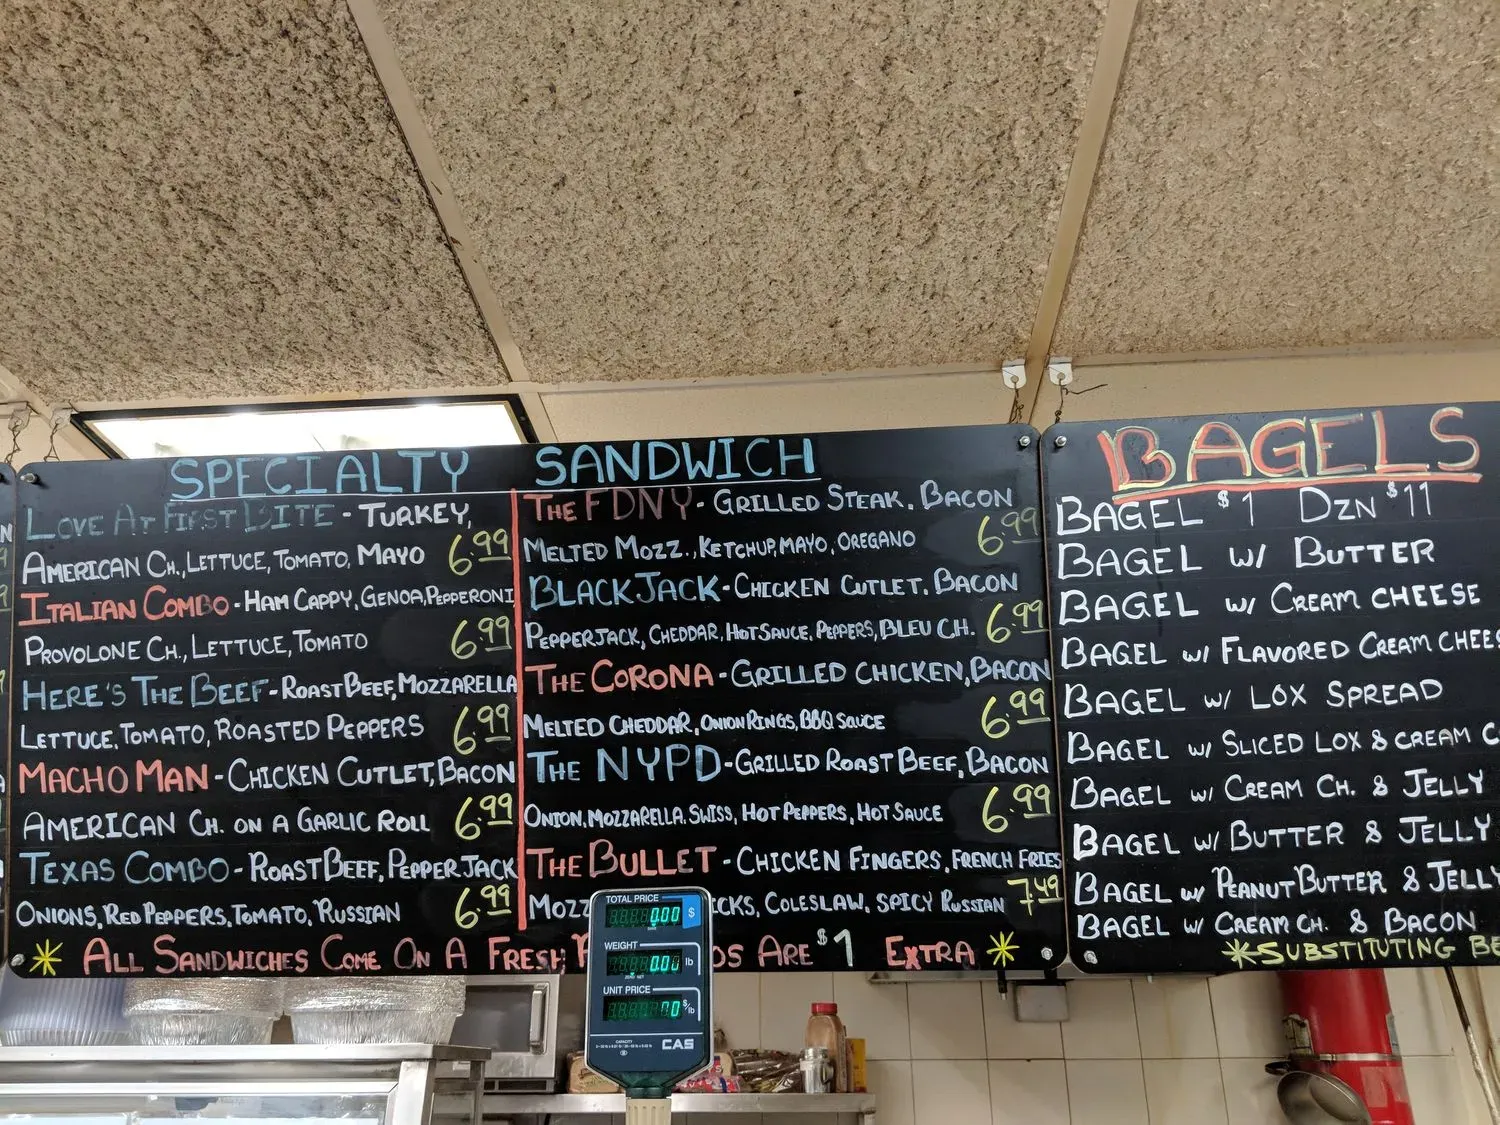 SPECIALTY SANDWICH
LOVE AT FIRST BITE - TURKEY,
AMERICAN CH., LETTUCE, TOMATO, MAYO 6.99
ITALIAN COMBO - HAM CAPPY, GENOA, PEPPERONI
PROVOLONE CH., LETTUCE, TOMATO 6.99
HERE'S THE BEEF - ROAST BEEF, MOZZARELLA
LETTUCE, TOMATO, ROASTED PEPPERS 6.99
MACHO MAN - CHICKEN CUTLET, BACON
AMERICAN CH. ON A GARLIC ROLL 6.99
TEXAS COMBO - ROAST BEEF, PEPPER JACK
ONIONS, RED PEPPERS, TOMATO, RUSSIAN 6.99
THE FDNY - GRILLED STEAK, BACON
MELTED MOZZ., KETCHUP, MAYO, OREGANO 6.99
BLACK JACK - CHICKEN CUTLET, BACON
PEPPERJACK, CHEDDAR, HOT SAUCE, PEPPERS, BLEU CH. 6.99
THE CORONA - GRILLED CHICKEN, BACON
MELTED CHEDDAR, ONION RINGS, BBQ SAUCE 6.99
THE NYPD - GRILLED ROAST BEEF, BACON
ONION, MOZZARELLA, SWISS, HOT PEPPERS, HOT SAUCE 6.99
THE BULLET - CHICKEN FINGERS, FRENCH FRIES
MOZZ ICKS, COLESLAW, SPICY RUSSIAN 7.49
* ALL SANDWICHES COME ON A FRESH OS ARE $1 EXTRA *
BAGELS
BAGEL $1 DZN $11
BAGEL W/ BUTTER
BAGEL W/ CREAM CHEESE
BAGEL W/ FLAVORED CREAM CHEES
BAGEL W/ LOX SPREAD
BAGEL W/ SLICED LOX & CREAM C
BAGEL W/ CREAM CH. & JELLY
BAGEL W/ BUTTER & JELLY
BAGEL W/ PEANUT BUTTER & JELLY
BAGEL W/ CREAM CH. & BACON
*SUBSTITUTING BE
TOTAL PRICE
0.00 $
WEIGHT
0.00 lb
UNIT PRICE
0.0 $/lb
CAPACITY
CAS